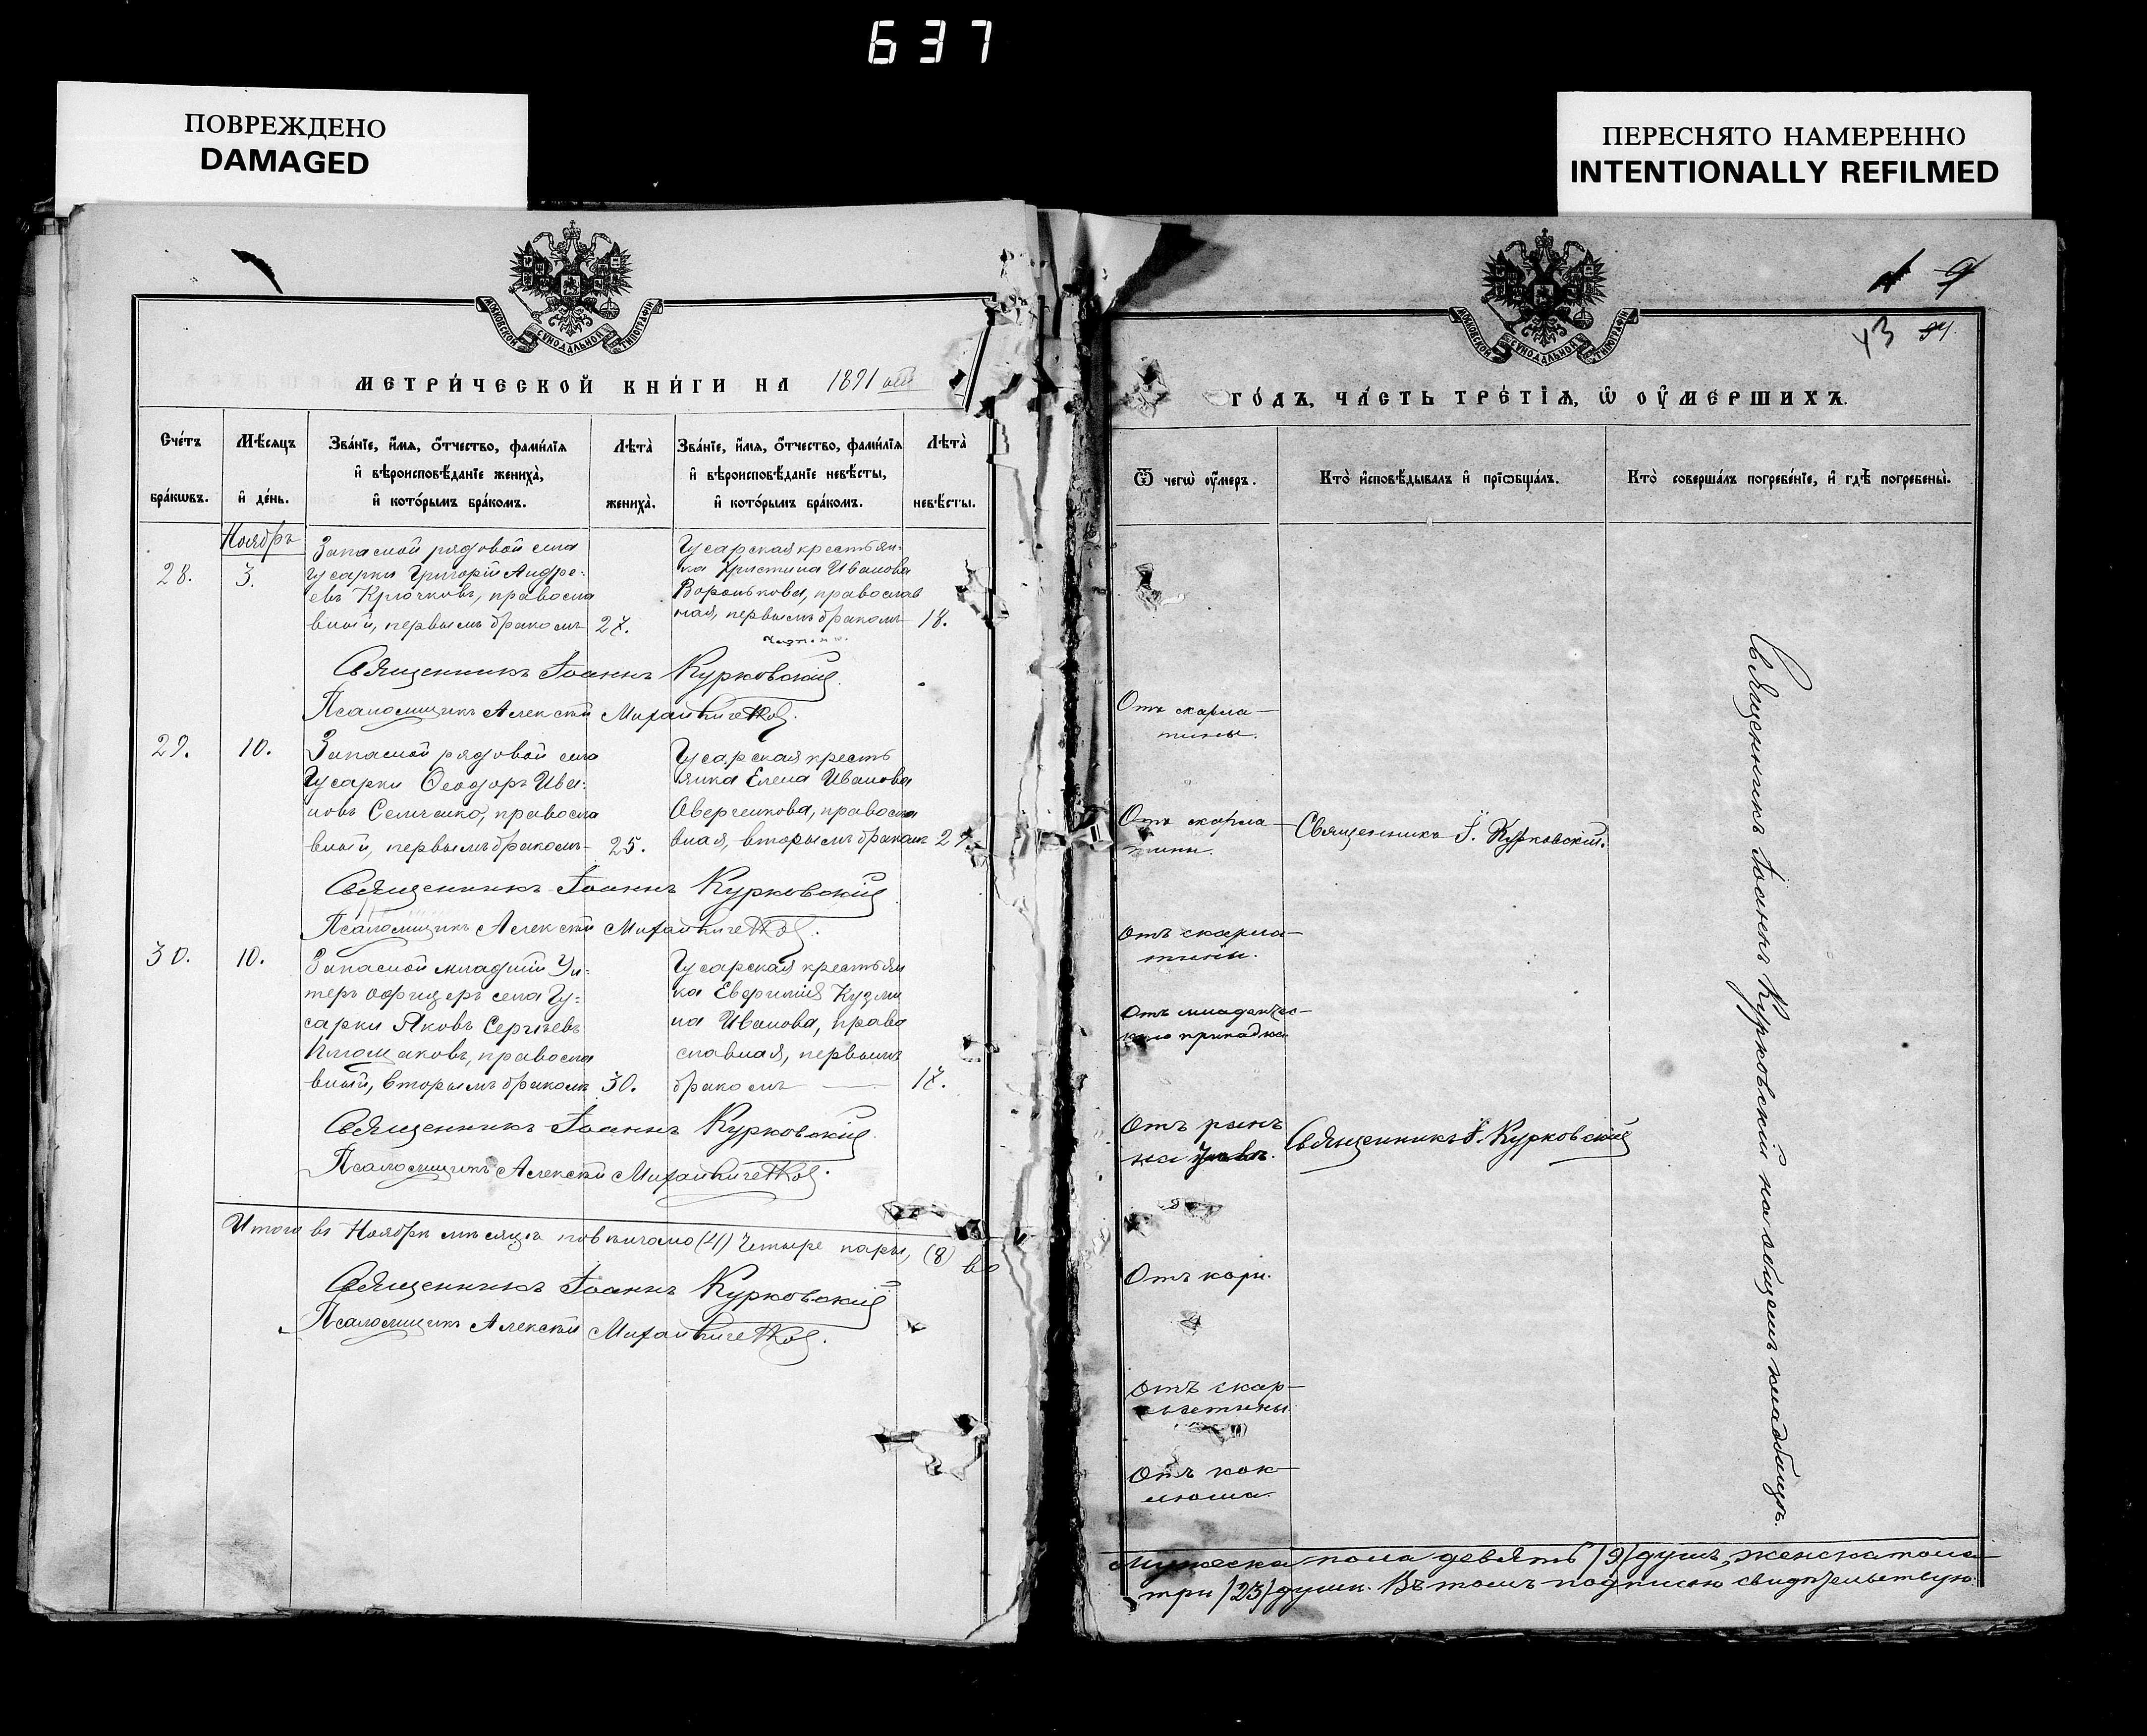 637
ПОВРЕЖДЕНО
DAMAGED
ПЕРЕСНЯТО НАМЕРЕННО
INTENTIONALLY REFILMED
МОСКОВСКОЙ СУНОДАЛЬНОЙ ТИПОГРАФІИ
МЕТРИ́ЧЕСКОЙ КНИ́ГИ НА 1891
Сче́тъ бра́кωвъ.
Мѣ́сяцъ и҆ де́нь.
Зва́нїе, и҆́мя, ѻ҆́тчество, фами́лїя
и҆ вѣроисповѣ́данїе жениха̀,
и҆ кото́рымъ бра́комъ.
Лѣта̀ жениха̀.
Зва́нїе, и҆́мя, ѻ҆́тчество, фами́лїя
и҆ вѣроисповѣ́данїе невѣ́сты,
и҆ кото́рымъ бра́комъ.
Лѣта̀ невѣ́сты.
Ноябрь
28. 3.
Запасной рядовой села
Гусарки Григорій Андре-
евъ Крючковъ, правосла
вный, первымъ бракомъ 27.
Гусарская крестьян-
ка Христина Иванова
Воронькова, православ
ная, первымъ бракомъ 18.
Священникъ Іоаннъ Курковскій.
Псаломщикъ Алексѣй
29. 10.
Запасной рядовой села
Гусарки Ѳеодоръ Ива-
новъ Семченко, правосла
вный, первымъ бракомъ 25.
Гусарская кресть
янка Елена Иванова
Оверченкова, правосла
вная, вторымъ бракомъ 2
Священникъ Іоаннъ Курковскій
Псаломщикъ Алексѣй
30. 10.
Запасной младшій Ун-
теръ офицеръ села Гу-
сарки Яковъ Сергѣевъ
правосла
вный, вторымъ бракомъ 30.
Гусарская крестьян
ка Евфимія Кузми
на Иванова, право
славная, первымъ
бракомъ 17.
Священникъ Іоаннъ Курковскій.
Псаломщикъ Алексѣй
Итого въ Ноябрѣ мѣсяцѣ повѣнчано (4) четыре пары, (8) во
Священникъ Іоаннъ Курковскій
Псаломщикъ Алексѣй
МОСКОВСКОЙ СУНОДАЛЬНОЙ ТИПОГРАФІИ
43
ГО́ДЪ, ЧА́СТЬ ТРЕ́ТЇѦ, Ѡ҆ ОУ҆МЕ́РШИХЪ.
Ѿ чегѡ̀ оу҆́меръ.
Кто̀ и҆сповѣ́дывалъ и҆ прїѡбща́лъ.
Кто̀ соверша́лъ погребе́нїе, и҆ гдѣ̀ погребены̀.
Отъ скарла-
тины.
Отъ скарла-
тины.
Священникъ І. Курковскій.
Отъ скарла-
тины.
Отъ младенчес-
каго припадка
Отъ ранъ
на
Священникъ І. Курковскій
Отъ кори.
Отъ скар-
латины
Отъ кок-
люша.
Священникъ Іоаннъ Курковскій на общемъ кладбищѣ.
Мужеска пола девять /9/ душъ, женска пола
три /23/ души. Въ томъ подписью свидѣтельствую.